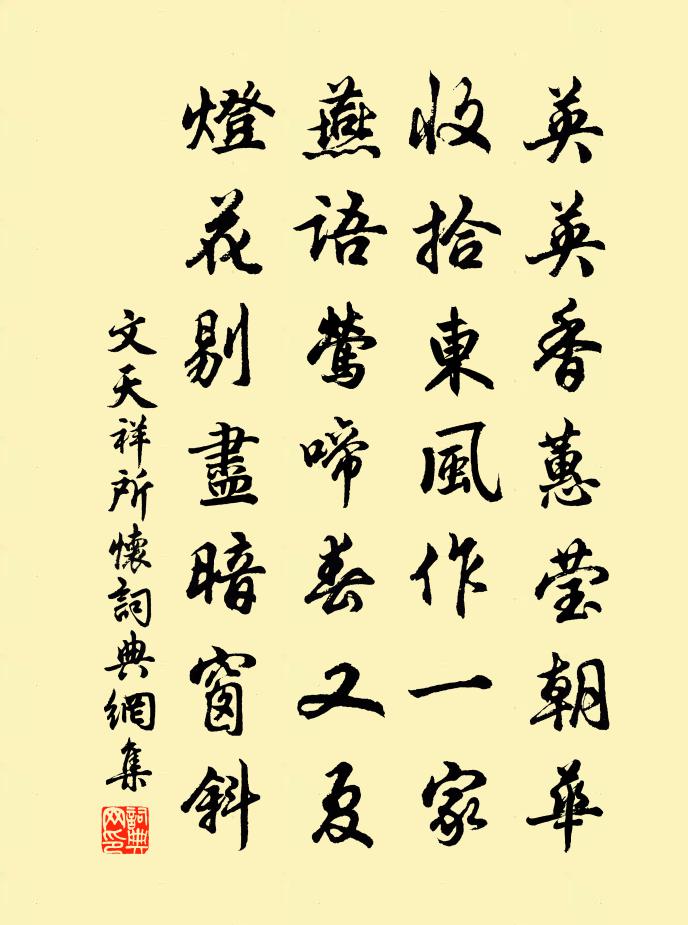 英英香蕙莹朝華
收拾東風作一家
燕語鶯啼春又夏
燈花剔盡暗窗斜
文天祥所懷詞典網集
詞典网印